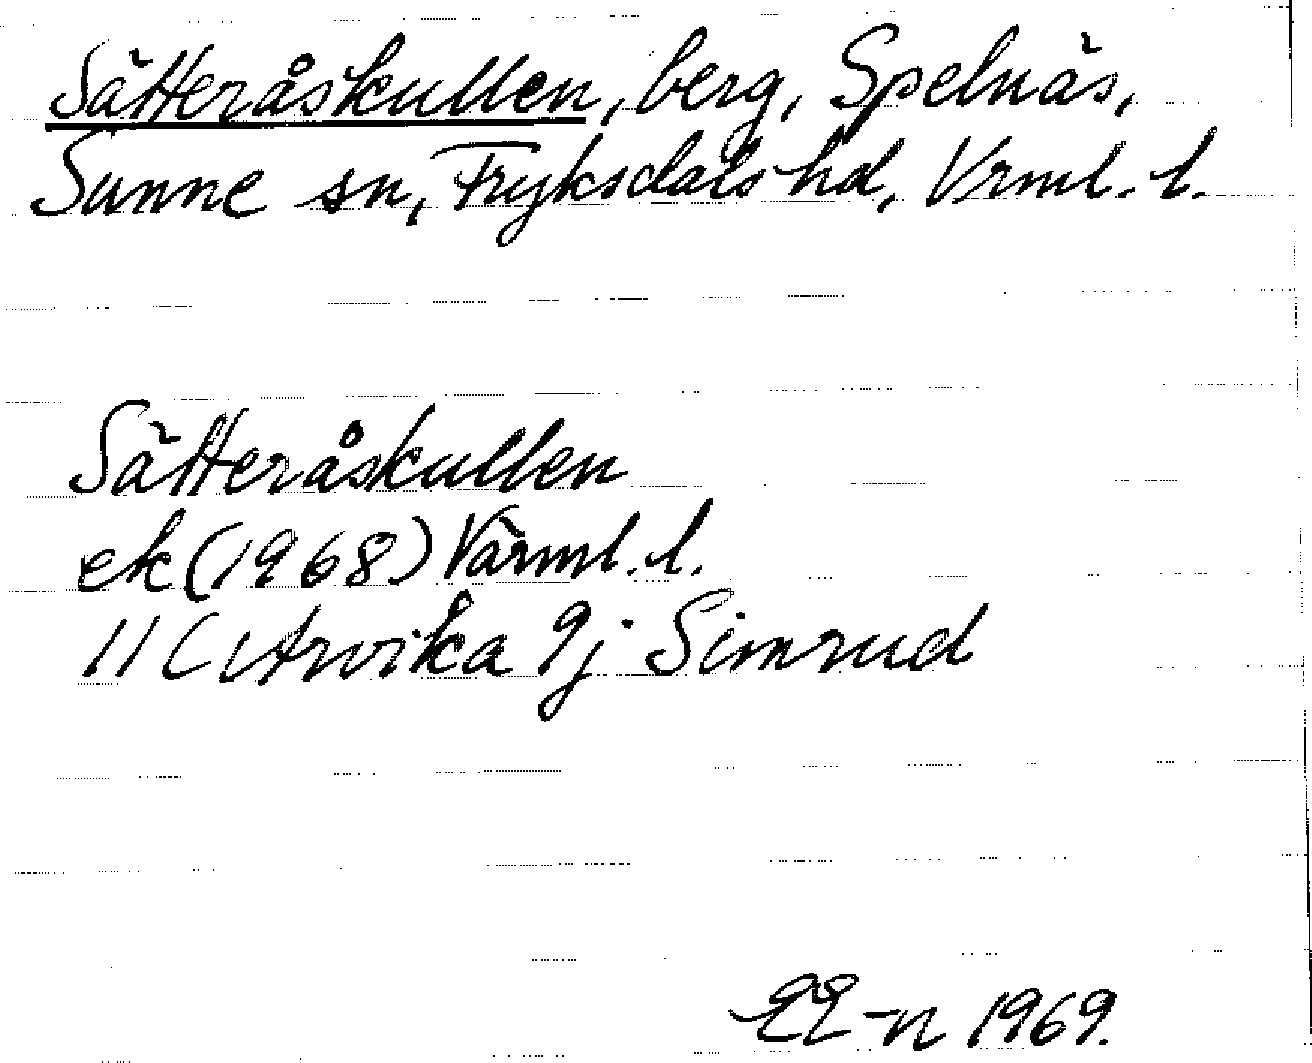 Sätteråskullen, berg, Spelnäs,
Sunne sn, Fryksdals hd, Vrml. l.
Sätteråskullen
ek (1968) Värml. l.
11 C Arvika 9j Simrud
EE-n 1969.